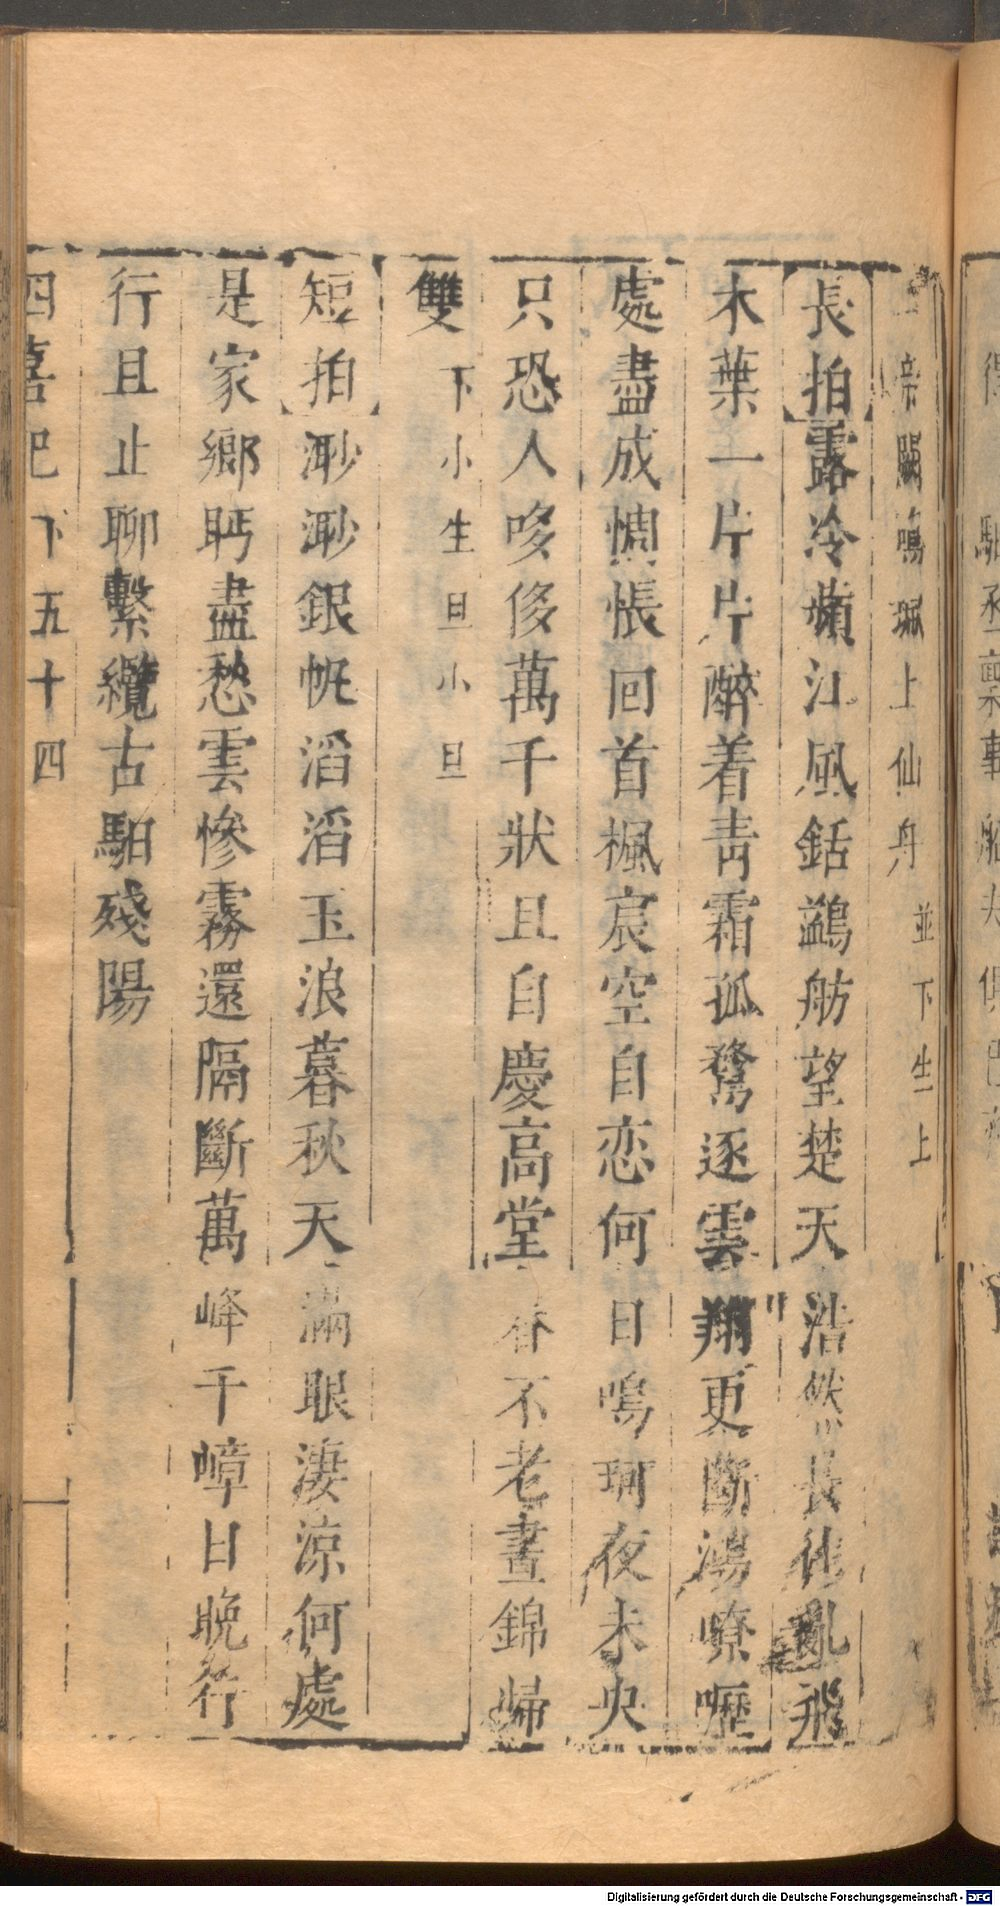 帝闕鳴珮上仙舟 並下生上
長拍露冷蘋江風銛鷁舫望楚天浩然長亂飛
木葉一片片醉着青霜孤鶩逐雲翔更斷鴻嘹嚦
處盡成惆悵回首楓宸空自恋何日鳴珂夜未央
只恐人哆侈萬千狀且自慶高堂春不老晝錦歸
雙 下小生旦小旦
短拍渺渺銀帆滔滔玉浪暮秋天滿眼淒涼何處
是家鄉眄盡愁雲慘霧還隔斷萬峰千嶂日晚行
行且止聊繫纜古駘殘陽
四喜記 下 五十四
Digitalisierung gefördert durch die Deutsche Forschungsgemeinschaft - DFG